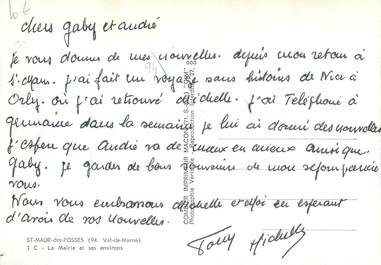 chers gaby et andré
je vous donne de mes nouvelles. depuis mon retour à
St Mam. j'ai fait un voyage sans histoires de Nice à
Orly. où j'ai retrouvé Michelle. j'ai Téléphoné à
germaine dans la semaine je lui ai donné des nouvelles
j'espère que André va de mieux en mieux ainsi que
Gaby. je garde de bons souvenirs de mon séjour parmi
vous.
Nous vous embrassons Michelle et moi en espérant
d'avoir de vos nouvelles.
Tony Michelle
ST-MAUR-des-FOSSES (94. Val-de-Marne)
1 C - La Mairie et ses environs